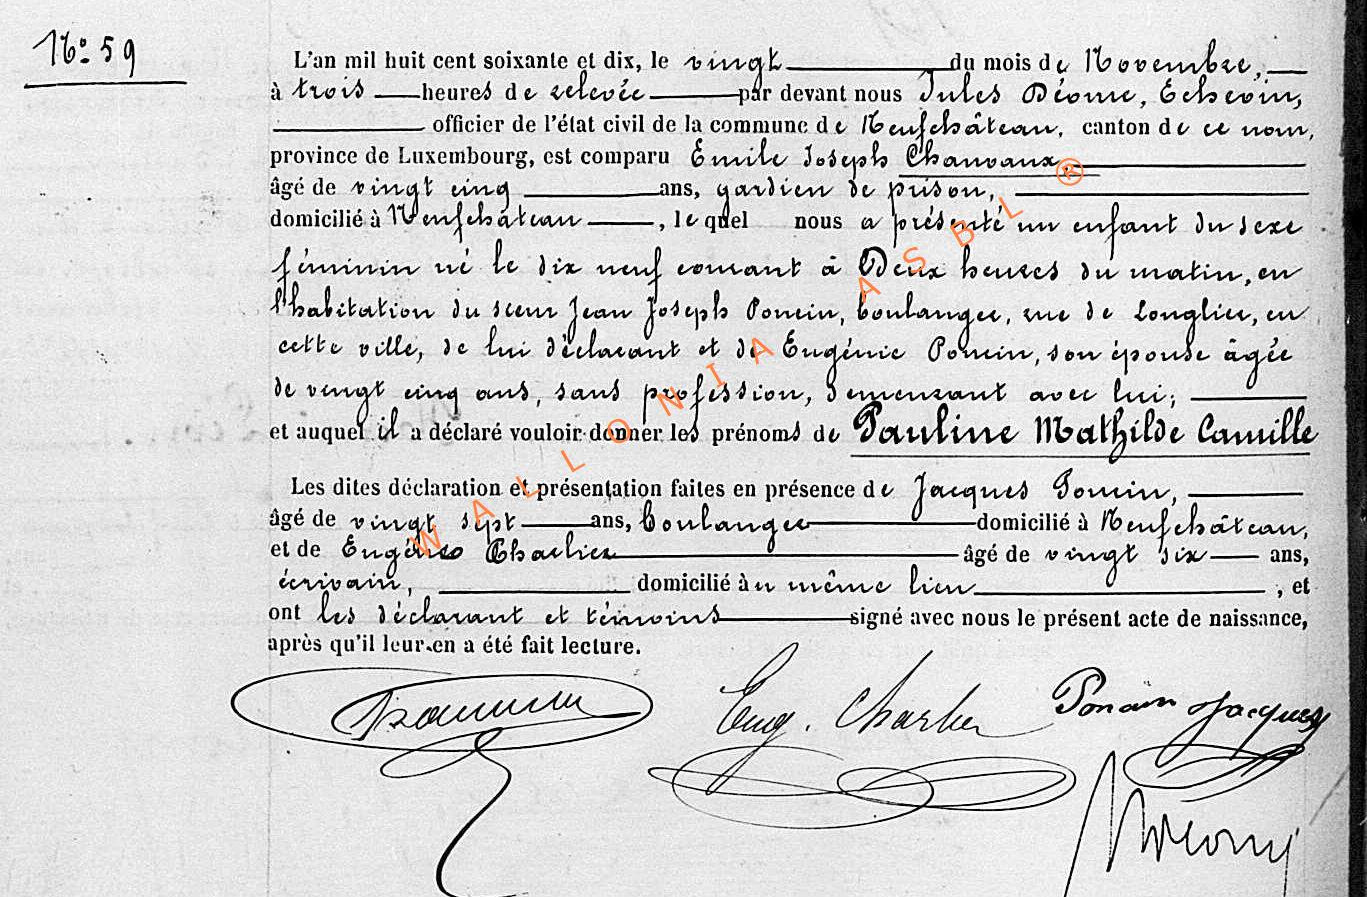 N° 59
L'an mil huit cent soixante et dix, le vingt du mois de Novembre,
à trois heures de relevée par devant nous Jules Déome, Echevin,
officier de l'état civil de la commune de Neufchâteau, canton de ce nom,
province de Luxembourg, est comparu Emile Joseph Chauvaux,
âgé de vingt cinq ans, gardien de prison,
domicilié à Neufchâteau, le quel nous a présenté un enfant du sexe
féminin né le dix neuf courant à Deux heures du matin, en
l'habitation du sieur Jean Joseph Poncin, boulanger, rue de Longlier, en
cette ville, de lui déclarant et de Eugénie Poncin, son épouse âgée
de vingt cinq ans, sans profession, demeurant avec lui;
et auquel il a déclaré vouloir donner les prénoms de Pauline Mathilde Camille
Les dites déclaration et présentation faites en présence de Jacques Poncin,
âgé de vingt sept ans, boulanger domicilié à Neufchâteau,
et de Eugène Charlier âgé de vingt six ans,
écrivain, domicilié au même lieu, et
ont les déclarant et témoins signé avec nous le présent acte de naissance,
après qu'il leur en a été fait lecture.
Eug. Charlier Poncin Jacques
WALLONIA ASBL ®